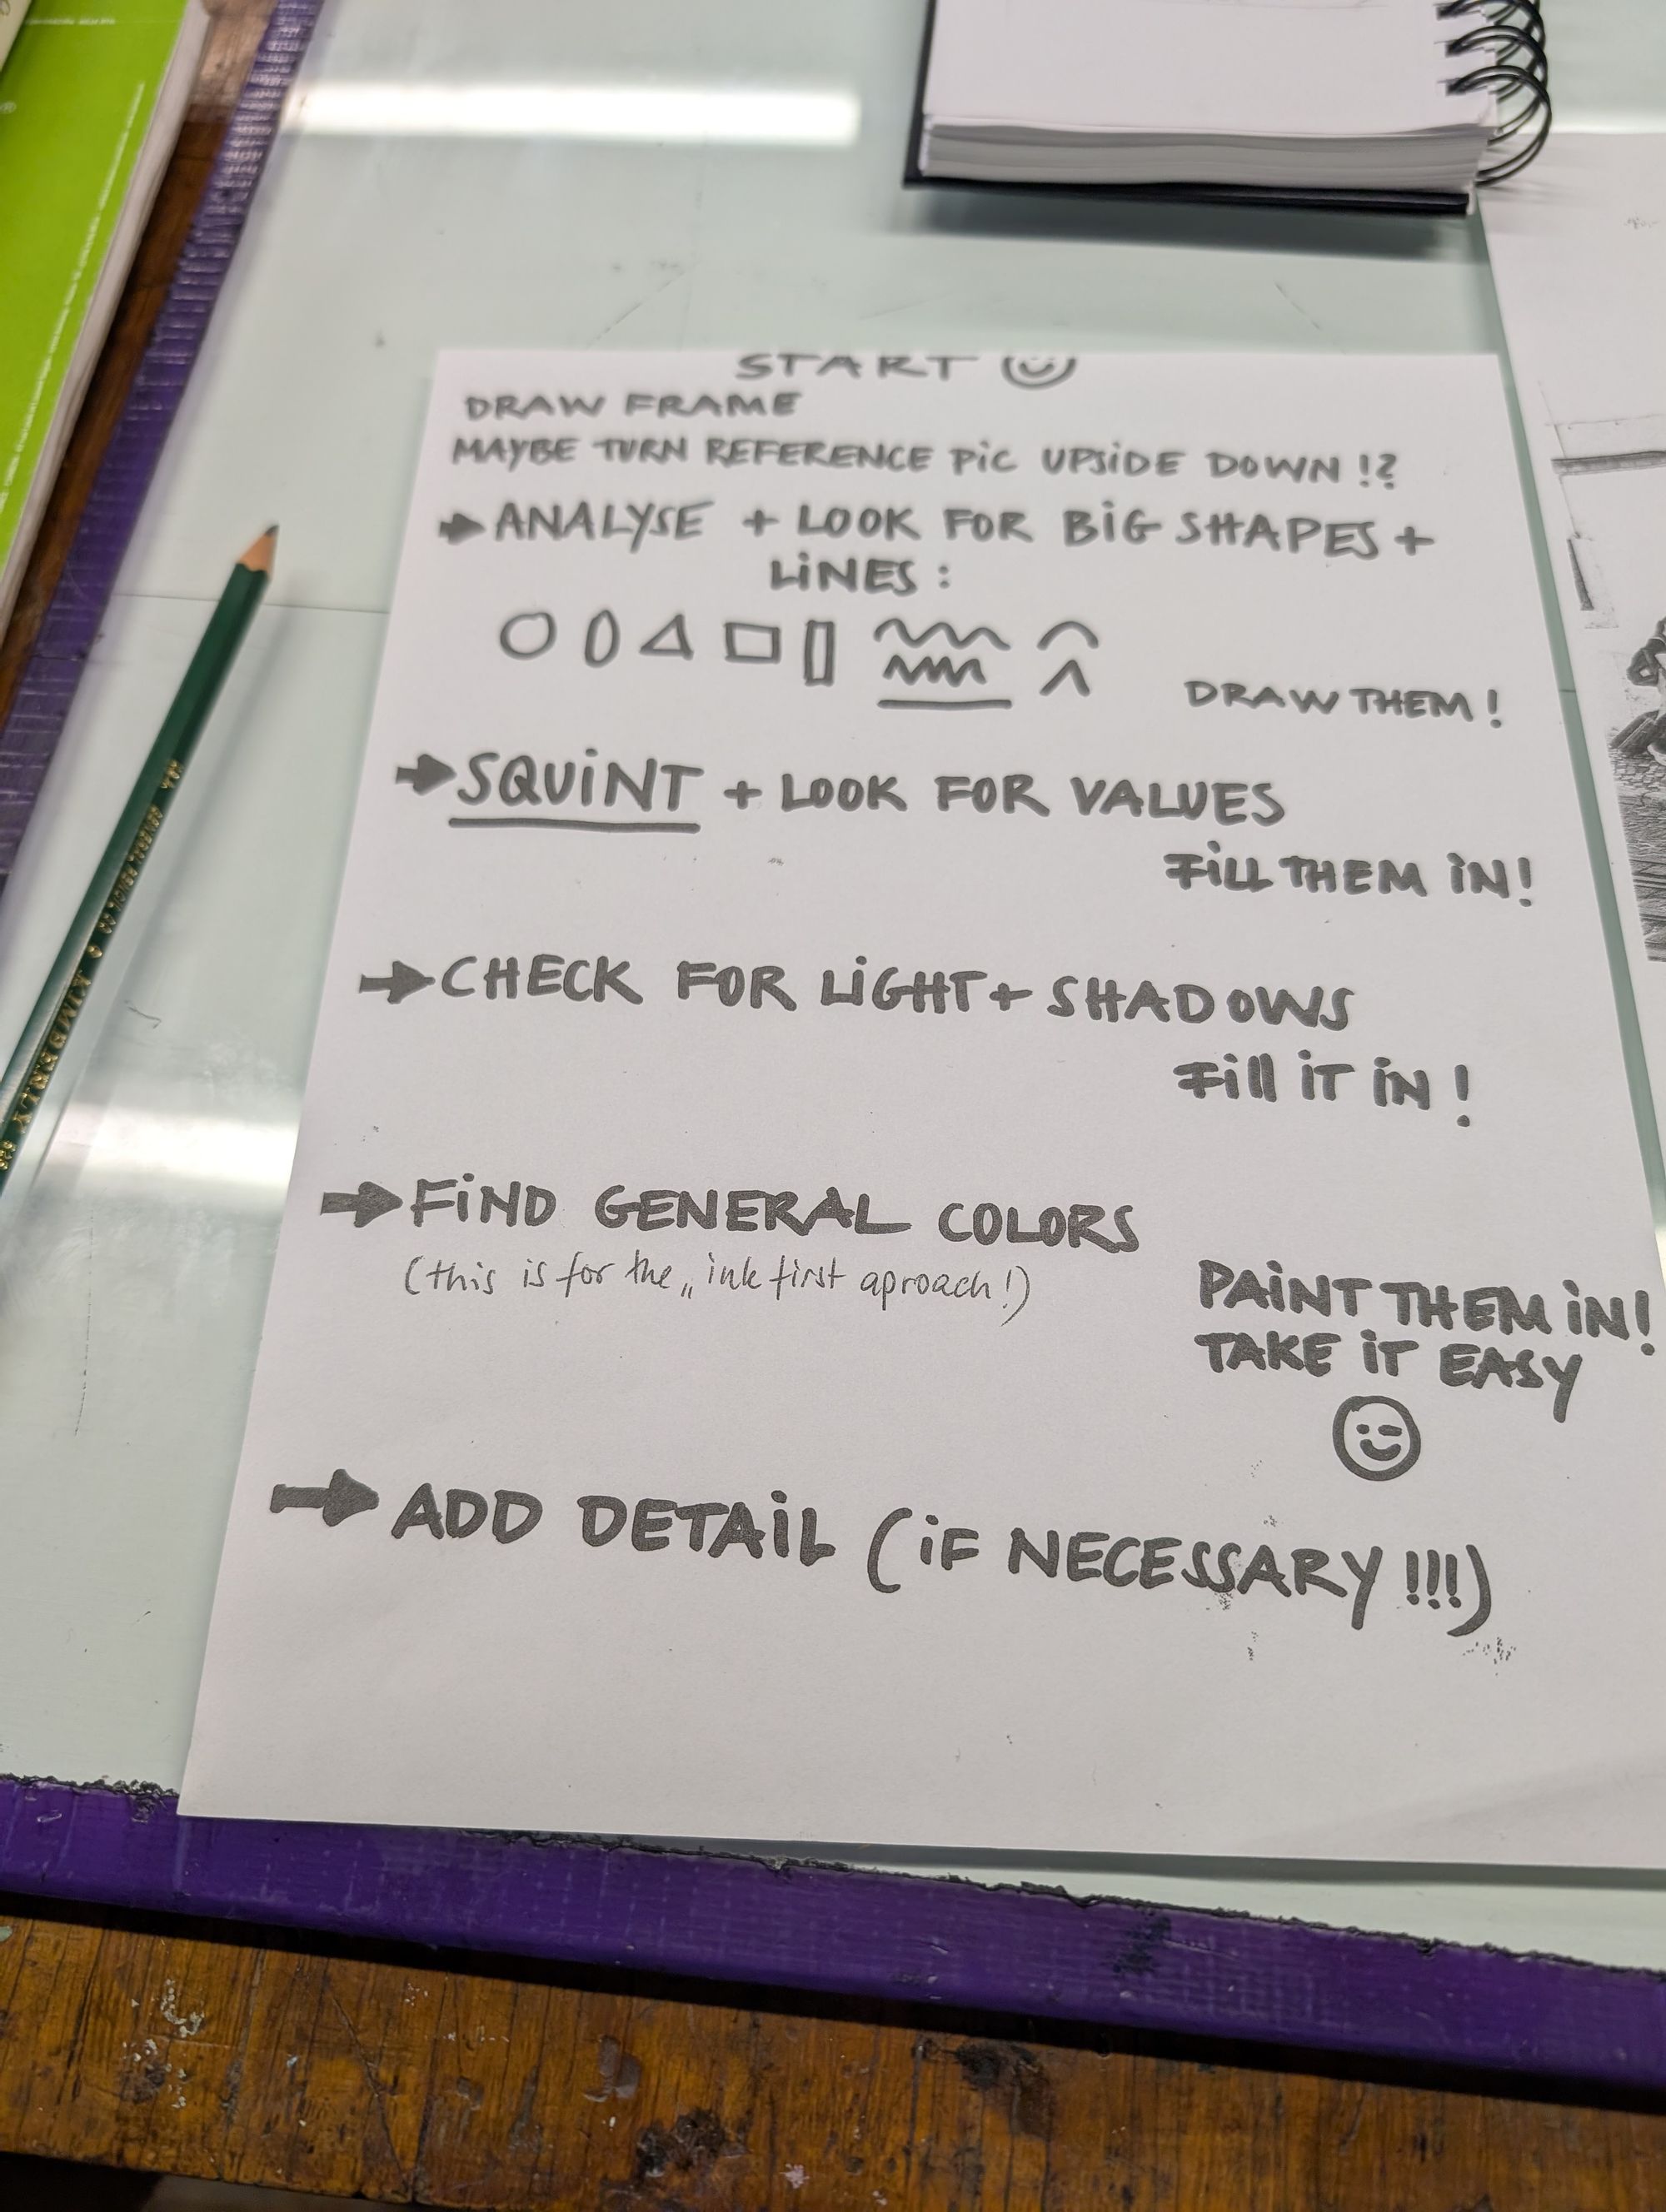 START
DRAW FRAME
MAYBE TURN REFERENCE PiC UPSiDE DOWN !?
ANALYSE + LOOK FOR BiG SHAPES +
LiNES :
DRAW THEM!
SQUiNT + LOOK FOR VALUES
FiLL THEM iN!
CHECK FOR LiGHT + SHADOWS
Fill iT iN!
FiND GENERAL COLORS
(this is for the „ ink first aproach!)
PAiNT THEM iN!
TAKE iT EASY
ADD DETAiL (iF NECESSARY !!!)
GENERAL PENCIL CO. KIMBERLY 525
®